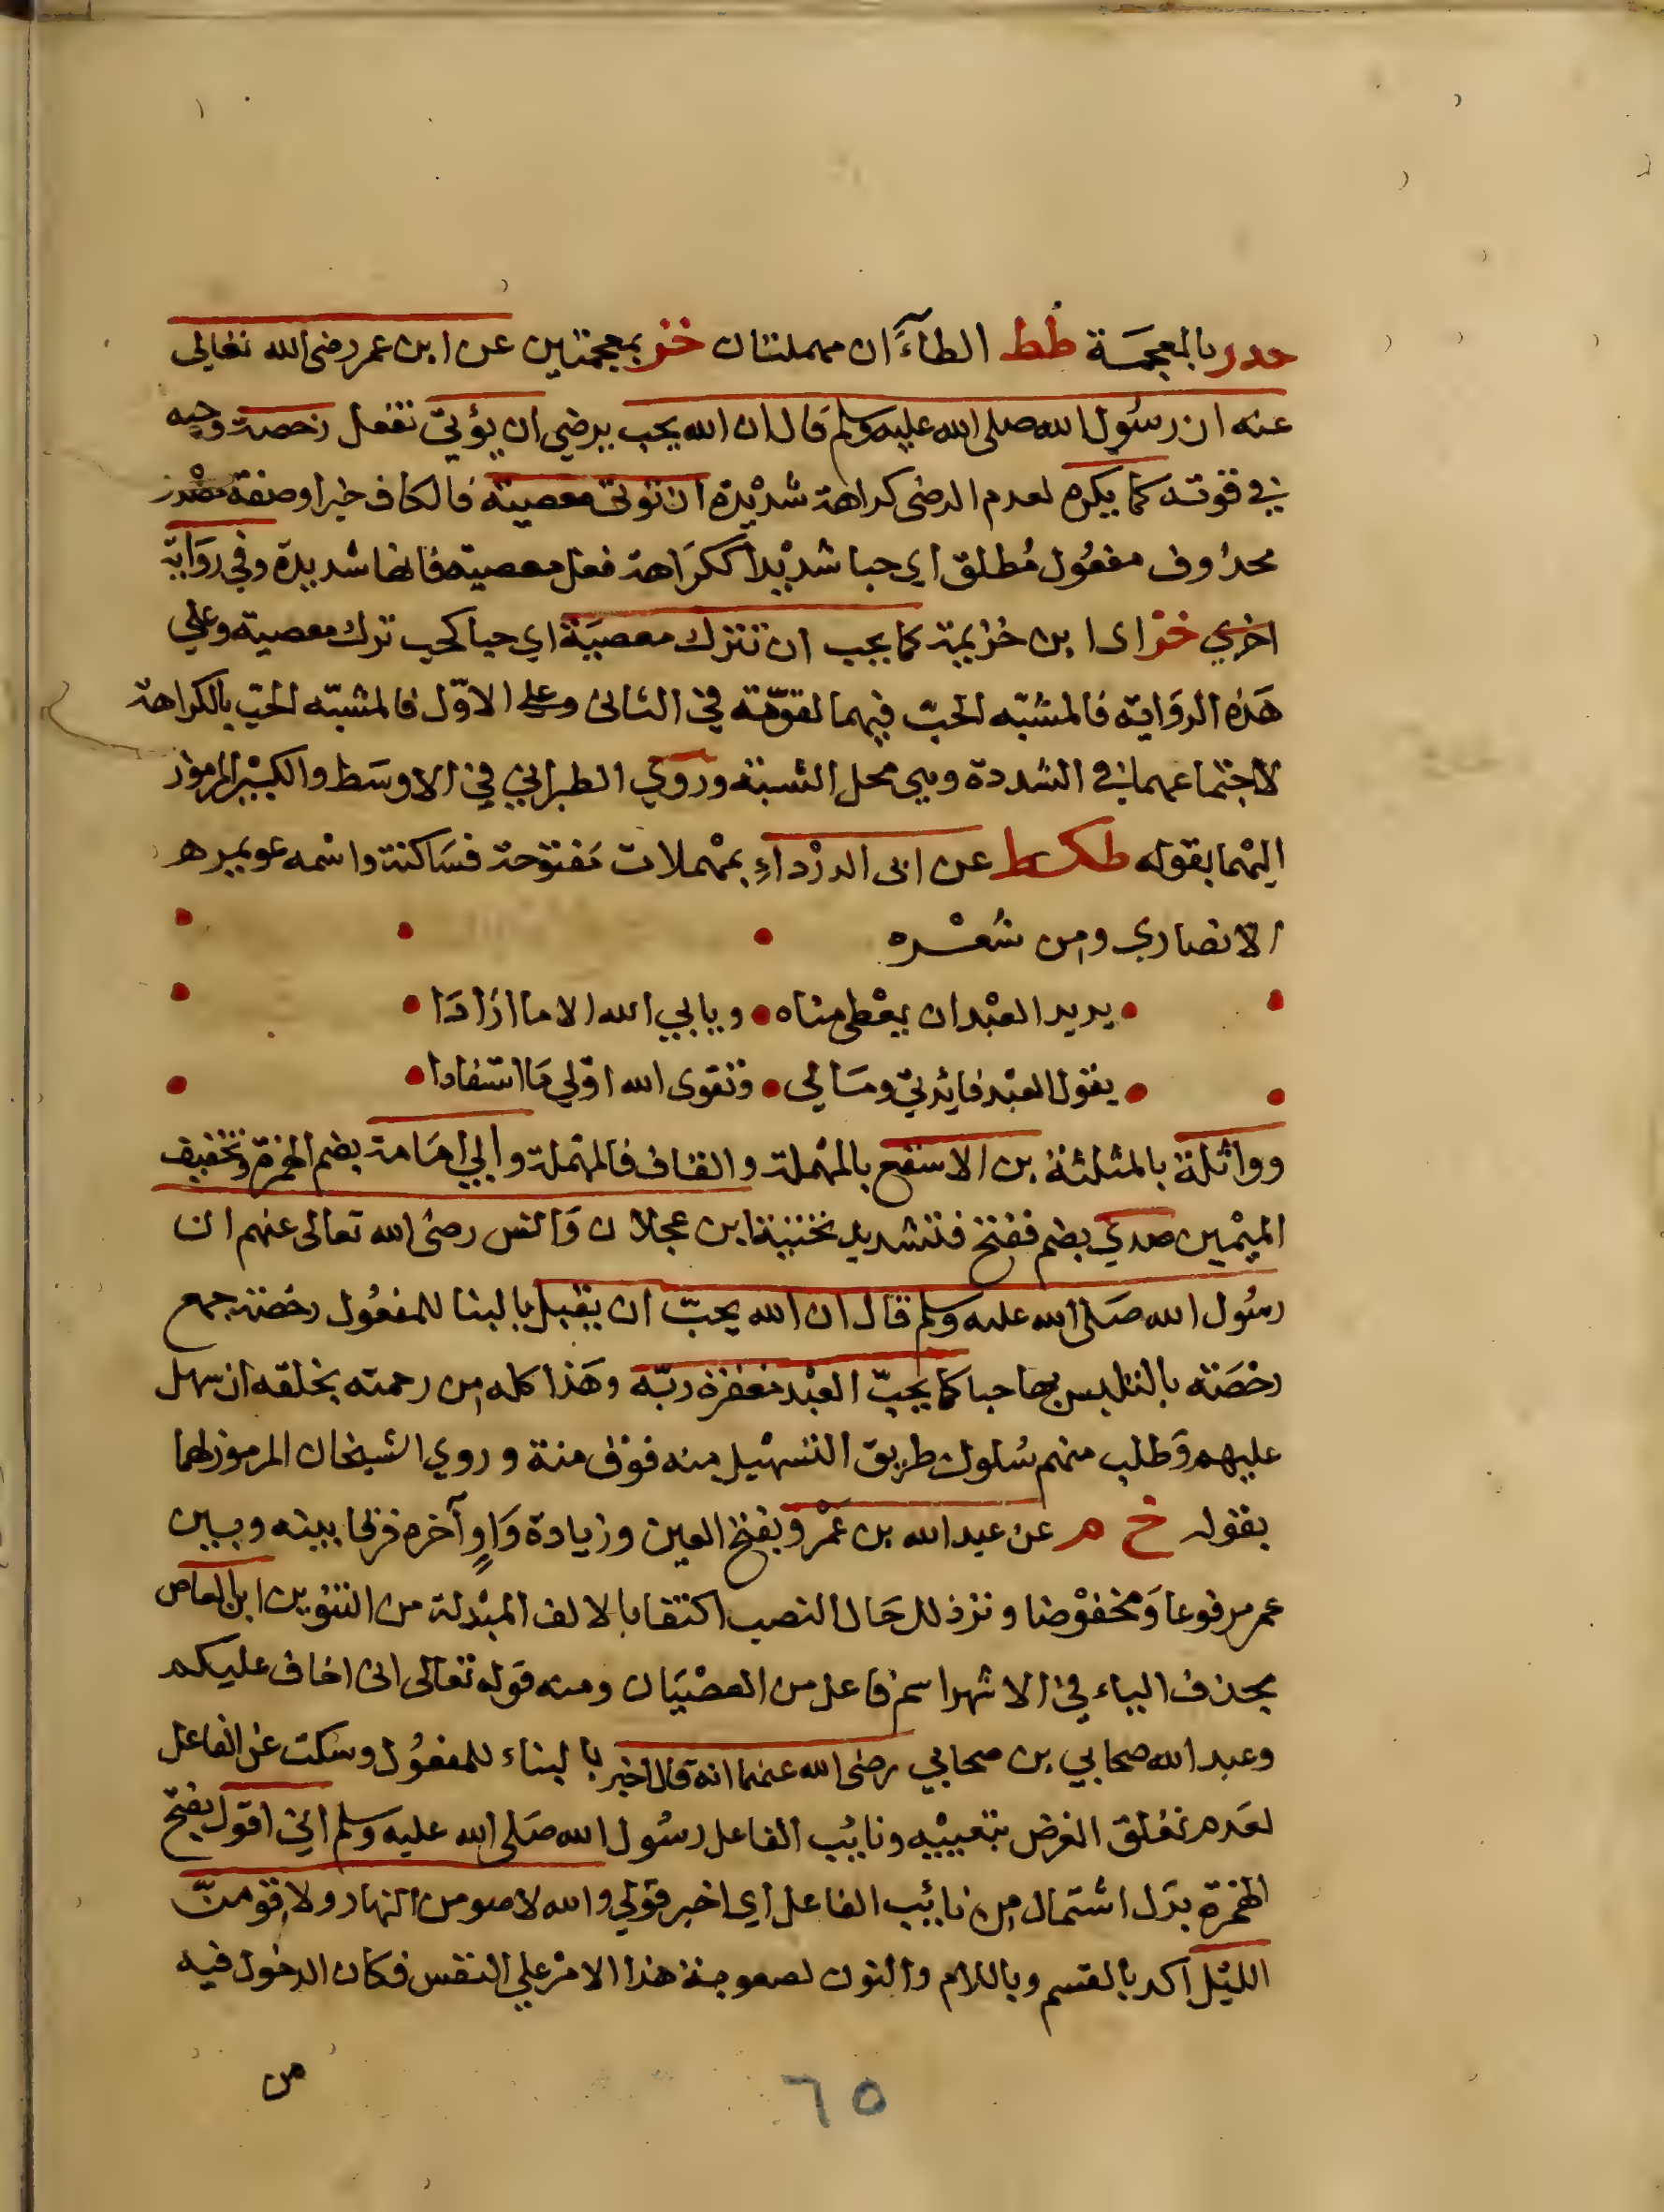 حدر بالمعجمة طط الطاءان مهملتان خز بمعجمتين عن ابن عمر رضى الله تعالى
عنه ان رسول الله صلى الله عليه وسلم قال ان الله يحب يرضي ان يؤتي تفعل رخصته وجيه
في قوته كما يكره لعدم الرضى كراهة شديدة ان تؤتى معصيته فالكاف خبر او صفة مصدر
محذوف مفعول مطلق اي حبا شديدا ككراهة فعل معصيته فانها شديدة وفي رواية
اخري خز اى ابن خزيمة كما يحب ان تترك معصيته اي حبا كحب ترك معصيته وعلي
هذه الرواية فالمشبه الحب فيهما لقوته في الثانى وعلى الاول فالمشبه الحب بالكراهة
لاجتماعهما في الشددة وهي محل الشبه وروي الطبراني في الاوسط والكبير المرموز
اليهما بقوله طكسط عن ابى الدرداء بمهملات مفتوحة فساكنة واسمه عويمر هـ
الانصاري ومن شعره
يريد العبد ان يعطى مناه • ويابي الله الا ما ارادا
يقول العبد فايدتي ومالي • وتقوى الله اولي ما استفادا
وواثلة بالمثلثة بن الاسقع بالمهملة والقاف فالمهملة وابي امامة بضم الهمزة وتخفيف
الميمين صدي بضم ففتح فتشديد تحتية ابن عجلان وانس رضى الله تعالى عنهم ان
رسول الله صلى الله عليه وسلم قال ان الله يحب ان يقبل بالبنا للمفعول رخصته جمع
رخصته بالتلبس بها حبا كما يحب العبد مغفرة ربه وهذا كله من رحمته بخلقه ان سهل
عليهم وطلب منهم سلوك طريق التسهيل منه فوق منة وروي الشيخان المرموز لهما
بقوله خ م عن عبد الله بن عمرو بفتح العين وزيادة واو آخره فرقا بينه وبين
عمر مرفوعا ومخفوضا وتزد للحال النصب اكتفا بالالف المبدلة من التنوين ابن العاص
بحذف الياء في الاشهر اسم فاعل من العصيان ومنه قوله تعالى انى اخاف عليكم
وعبد الله صحابي بن صحابي رضى الله عنهما انه قال اخبر بالبناء للمفعول وسكت عن الفاعل
لعدم تعلق الغرض بتعيينه ونائب الفاعل رسول الله صلى الله عليه وسلم اني اقول بفتح
الهمزة بدل اشتمال من نائب الفاعل اي اخبر قولي والله لاصومن النهار ولاقومن
الليل اكد بالقسم وباللام والنون لصعوبة هذا الامر علي النفس فكان الدخول فيه
من
٦٥